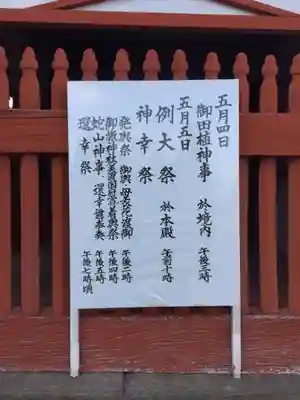 五月四日
御田植神事 於境内 午後三時
五月五日
例大祭 於本殿 午前十時
神幸祭
発輿祭 御輿・母衣花渡御 午後二時
御旅神社美濃国総社着輿祭 午後四時
蛇山神事、還幸舞奉奏 午後五時
還幸祭 午後七時頃